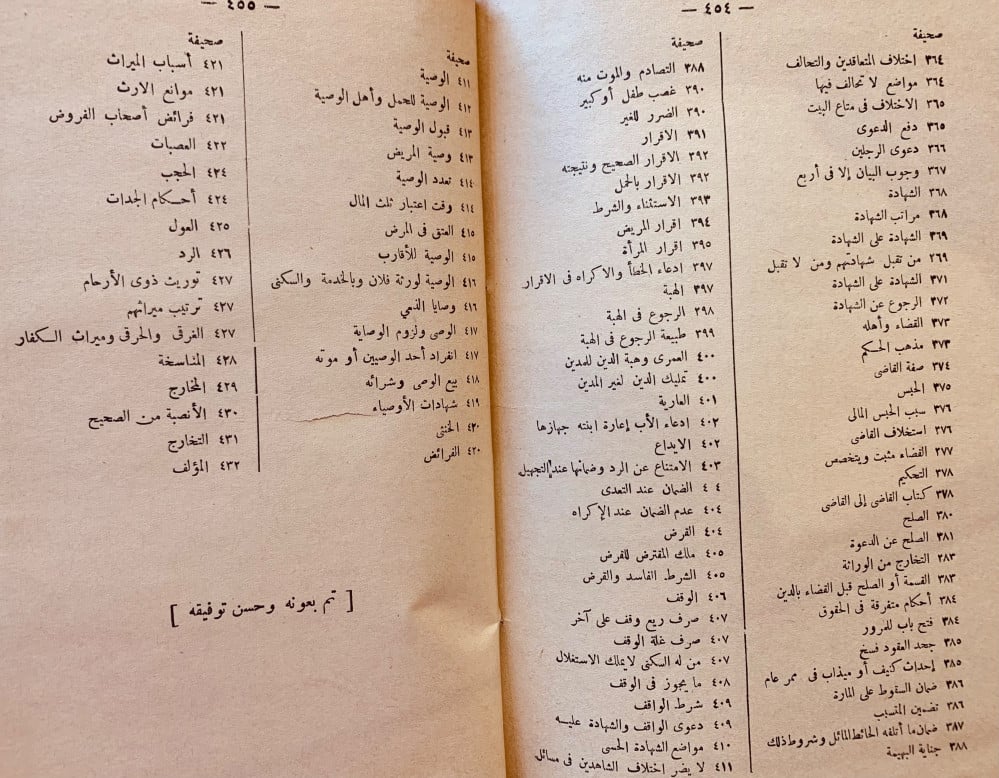 — ٤٥٤ —
صحيفة
٣٦٤ اختلاف المتعاقدين والتحالف
٣٦٤ مواضع لا تحالف فيها
٣٦٥ الاختلاف فى متاع البيت
٣٦٥ دفع الدعوى
٣٦٦ دعوى الرجلين
٣٦٧ وجوب البيان إلا فى أربع
٣٦٨ الشهادة
٣٦٨ مراتب الشهادة
٣٦٩ الشهادة على الشهادة
٢٦٩ من تقبل شهادتهم ومن لا تقبل
٣٧١ الشهادة على الشهادة
٣٧٢ الرجوع عن الشهادة
٣٧٣ القضاء وأهله
٣٧٣ مذهب الحكم
٣٧٤ صفة القاضى
٣٧٥ الحبس
٣٧٦ سبب الحبس المالى
٣٧٦ استخلاف القاضى
٣٧٧ القضاء مثبت ويتخصص
٣٧٨ التحكيم
٣٧٨ كتاب القاضى إلى القاضى
٣٨٠ الصلح
٣٨١ الصلح عن الدعوة
٢٨٣ التخارج من الوراثة
٣٨٣ القسمة أو الصلح قبل القضاء بالدين
٣٨٤ أحكام متفرقة فى الحقوق
٣٨٤ فتح باب للمرور
٣٨٥ جحد العقود فسخ
٣٨٥ إحداث كنيف أو ميذاب فى ممر عام
٣٨٦ ضمان السقوط على المارة
٣٨٦ تضمين المتسبب
٣٨٧ ضمان ما أتلفه الحائط المائل وشروط ذلك
٣٨٨ جناية البهيمة
صحيفة
٣٨٨ التصادم والموت منه
٣٩٠ غصب طفل أو كبير
٣٩٠ الضرر للغير
٣٩١ الاقرار
٣٩٢ الاقرار الصحيح ونتيجته
٣٩٢ الاقرار بالحمل
٣٩٣ الاستثناء والشرط
٣٩٤ اقرار المريض
٣٩٥ اقرار المرأة
٣٩٧ ادعاء الخطأ والاكراه فى الاقرار
٣٩٧ الهبة
٣٩٨ الرجوع فى الهبة
٣٩٩ طبيعة الرجوع فى الهبة
٤٠٠ العمرى وهبة الدين للمدين
٤٠٠ تمليك الدين لغير المدين
٤٠١ العارية
٤٠٢ ادعاء الأب إعارة ابنته جهازها
٤٠٢ الايداع
٤٠٣ الامتناع عن الرد وضمانها عند التجهيل
٤ ٤ الضمان عند التعدى
٤٠٤ عدم الضمان عند الإكراه
٤٠٤ القرض
٤٠٥ ملك المقترض للقرض
٤٠٥ الشرط الفاسد والقرض
٤٠٦ الوقف
٤٠٧ صرف ريع وقف على آخر
٤٠٧ صرف غلة الوقف
٤٠٧ من له السكنى لا يملك الاستغلال
٤٠٨ ما يجوز فى الوقف
٤٠٩ شرط الواقف
٤٠٩ دعوى الواقف والشهادة عليه
٤١٠ مواضع الشهادة الحسى
٤١١ لا يضر اختلاف الشاهدين فى مسائل
— ٤٥٥ —
صحيفة
٤١١ الوصية
٤١٢ الوصية للحمل وأهل الوصية
٤١٣ قبول الوصية
٤١٣ وصية المريض
٤١٤ تعدد الوصية
٤١٤ وقت اعتبار ثلث المال
٤١٥ العتق فى المرض
٤١٥ الوصية للأقارب
٤١٦ الوصية لورثة فلان وبالخدمة والسكنى
٤١٦ وصايا الذمي
٤١٧ الوصى ولزوم الوصاية
٤١٧ انفراد أحد الوصيين أو موته
٤١٨ بيع الوصى وشرائه
٤١٩ شهادات الأوصياء
٤٢٠ الخنثى
٤٢٠ الفرائض
صحيفة
٤٢١ أسباب الميراث
٤٢١ موانع الارث
٤٢١ فرائض أصحاب الفروض
٤٢٢ العصبات
٤٢٤ الحجب
٤٢٤ أحكام الجدات
٤٢٥ العول
٤٢٦ الرد
٤٢٧ توريث ذوى الأرحام
٤٢٧ ترتيب ميراثهم
٤٢٧ الغرقى والحرقى وميراث الكفار
٤٢٨ المناسخة
٤٢٩ المخارج
٤٣٠ الأنصبة من الصحيح
٤٣١ التخارج
٤٣٢ المؤلف
[ تم بعونه وحسن توفيقه ]